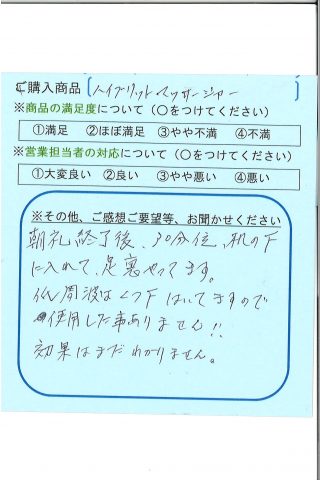 ご購入商品 〔ハイブリットマッサージャー〕
※商品の満足度について（○をつけてください）
①満足 ②ほぼ満足 ③やや不満 ④不満
※営業担当者の対応について（○をつけてください）
①大変良い ②良い ③やや悪い ④悪い
※その他、ご感想ご要望等、お聞かせください
朝礼終了後、30分位、机の下
に入れて、足裏やってます。
低周波はくつ下はいてますので
使用した事ありません!!
効果はまだわかりません。